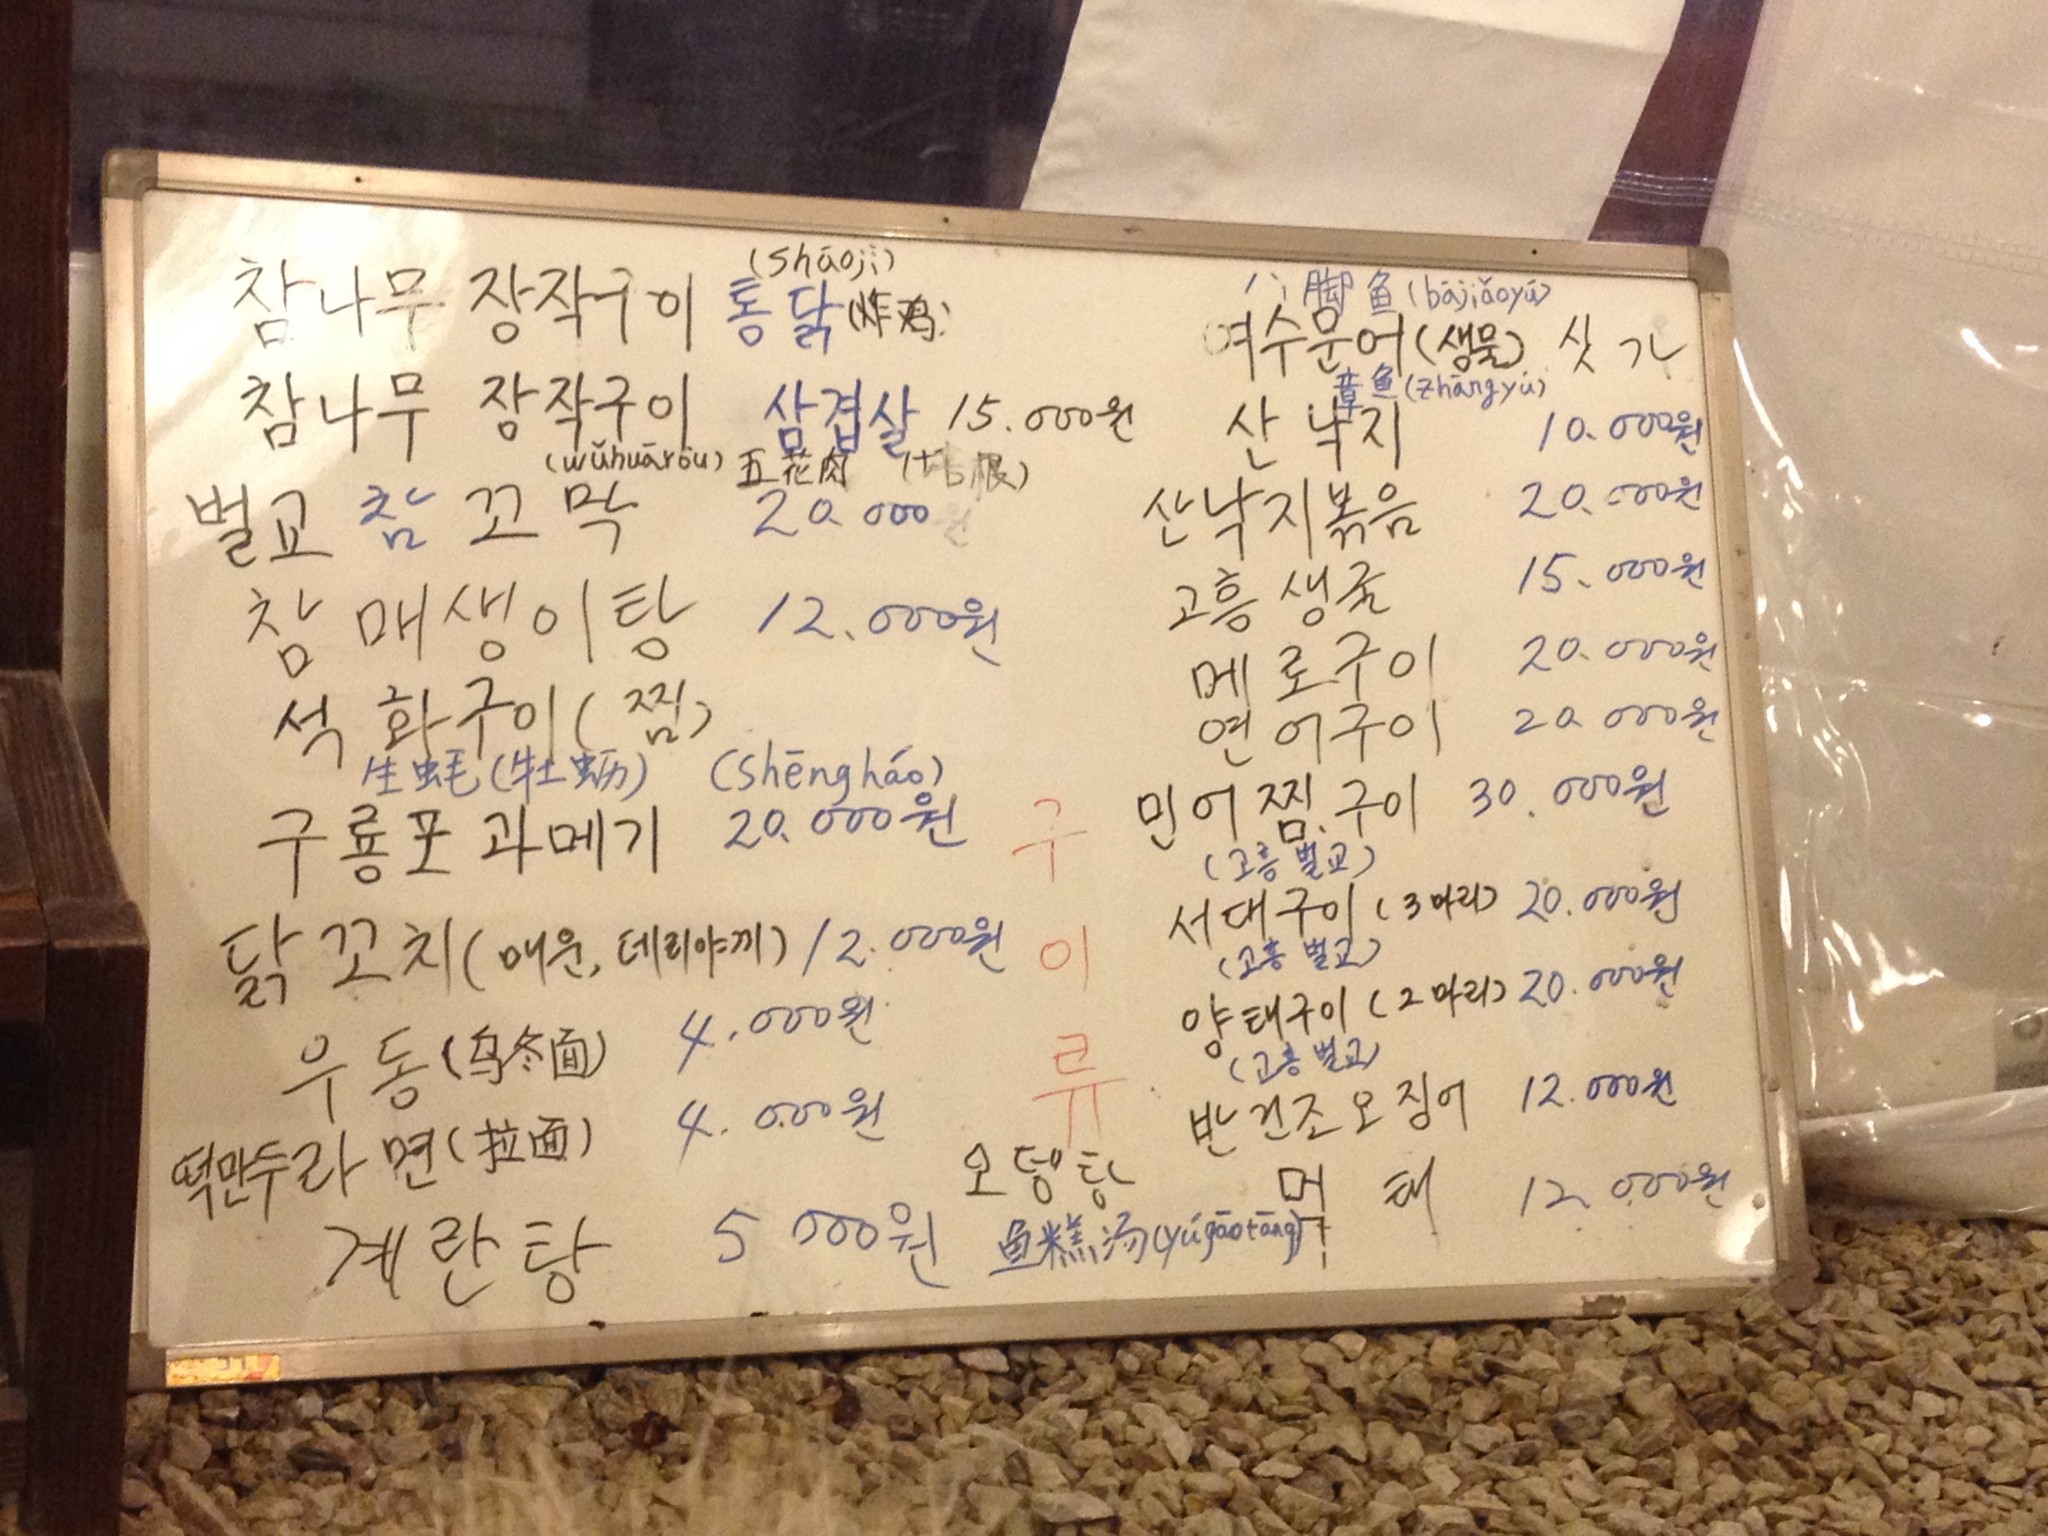 (shāojī)
참나무 장작구이 통닭 (炸鸡)
참나무 장작구이 삼겹살 15.000원
(wǔhuāròu) 五花肉 (培根)
벌교 참꼬막 20.000원
참매생이탕 12.000원
석화구이(찜)
生蚝(牡蛎) (shēngháo)
구룡포 과메기 20.000원
닭꼬치(매운, 데리야끼) 12.000원
우동(乌冬面) 4.000원
떡만두라면(拉面) 4.000원
계란탕 5000원
구이류
오뎅탕
鱼糕汤(yúgāotāng)
八脚鱼(bājiǎoyú)
여수문어(생물) 싯가
章鱼(zhāngyú)
산낙지 10.000원
산낙지볶음 20.000원
고흥생굴 15.000원
메로구이 20.000원
연어구이 20.000원
민어찜.구이 30.000원
(고흥 벌교)
서대구이(3마리) 20.000원
(고흥 벌교)
양태구이(2마리) 20.000원
(고흥 벌교)
반건조오징어 12.000원
먹태 12.000원